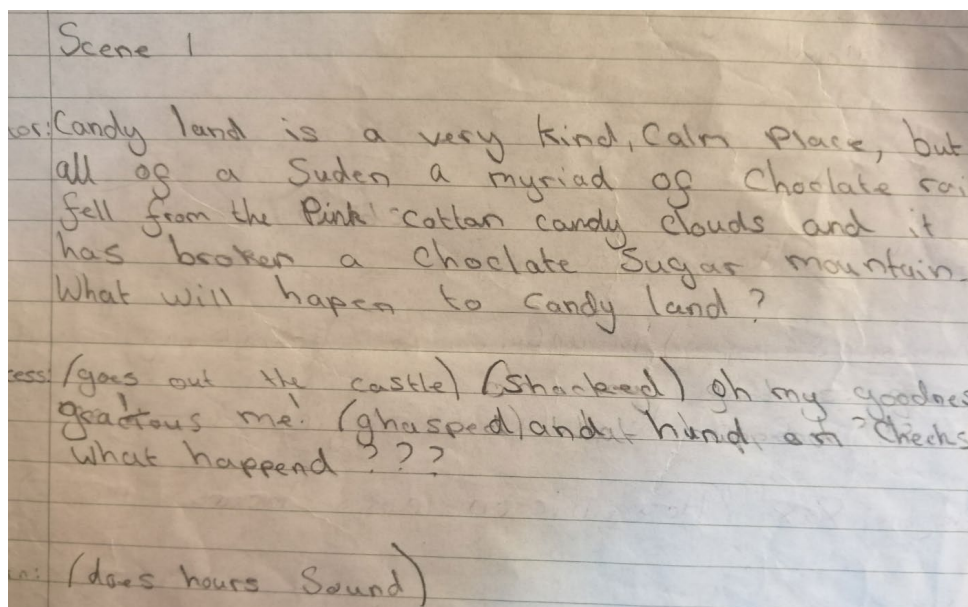 Scene 1
or: Candy land is a very kind, Calm Place, but
all of a Suden a myriad of Choclate rai
fell from the Pink cottan candy clouds and it
has broken a choclate Sugar mountain.
What will hapen to candy land?
ess: (goes out the castle) (Shacked) oh my goodnes
me! (ghasped) and a hand on Cheeks
what happend ???
(does hours Sound)